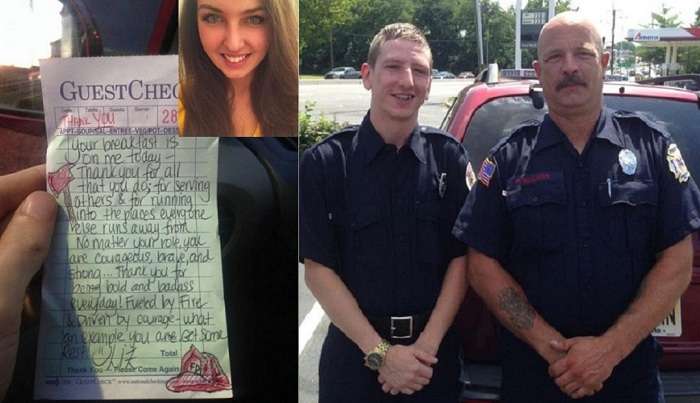 GUESTCHEC
Date Table Guests Server
THANK YOU 28
APPT-SOUP/SAL-ENTREE-VEG/POT-DESS
Your breakfast is
on me today -
Thank you for all
that you do; for serving
others & for running
into the places everyone
else runs away from.
No matter your role, you
are courageous, brave, and
strong... Thank you for
being bold and badass
everyday! Fueled by Fire
& Driven by courage - what
an example you are. Get some
Rest!! Liz
Total
Thank You - Please Come Again
FD